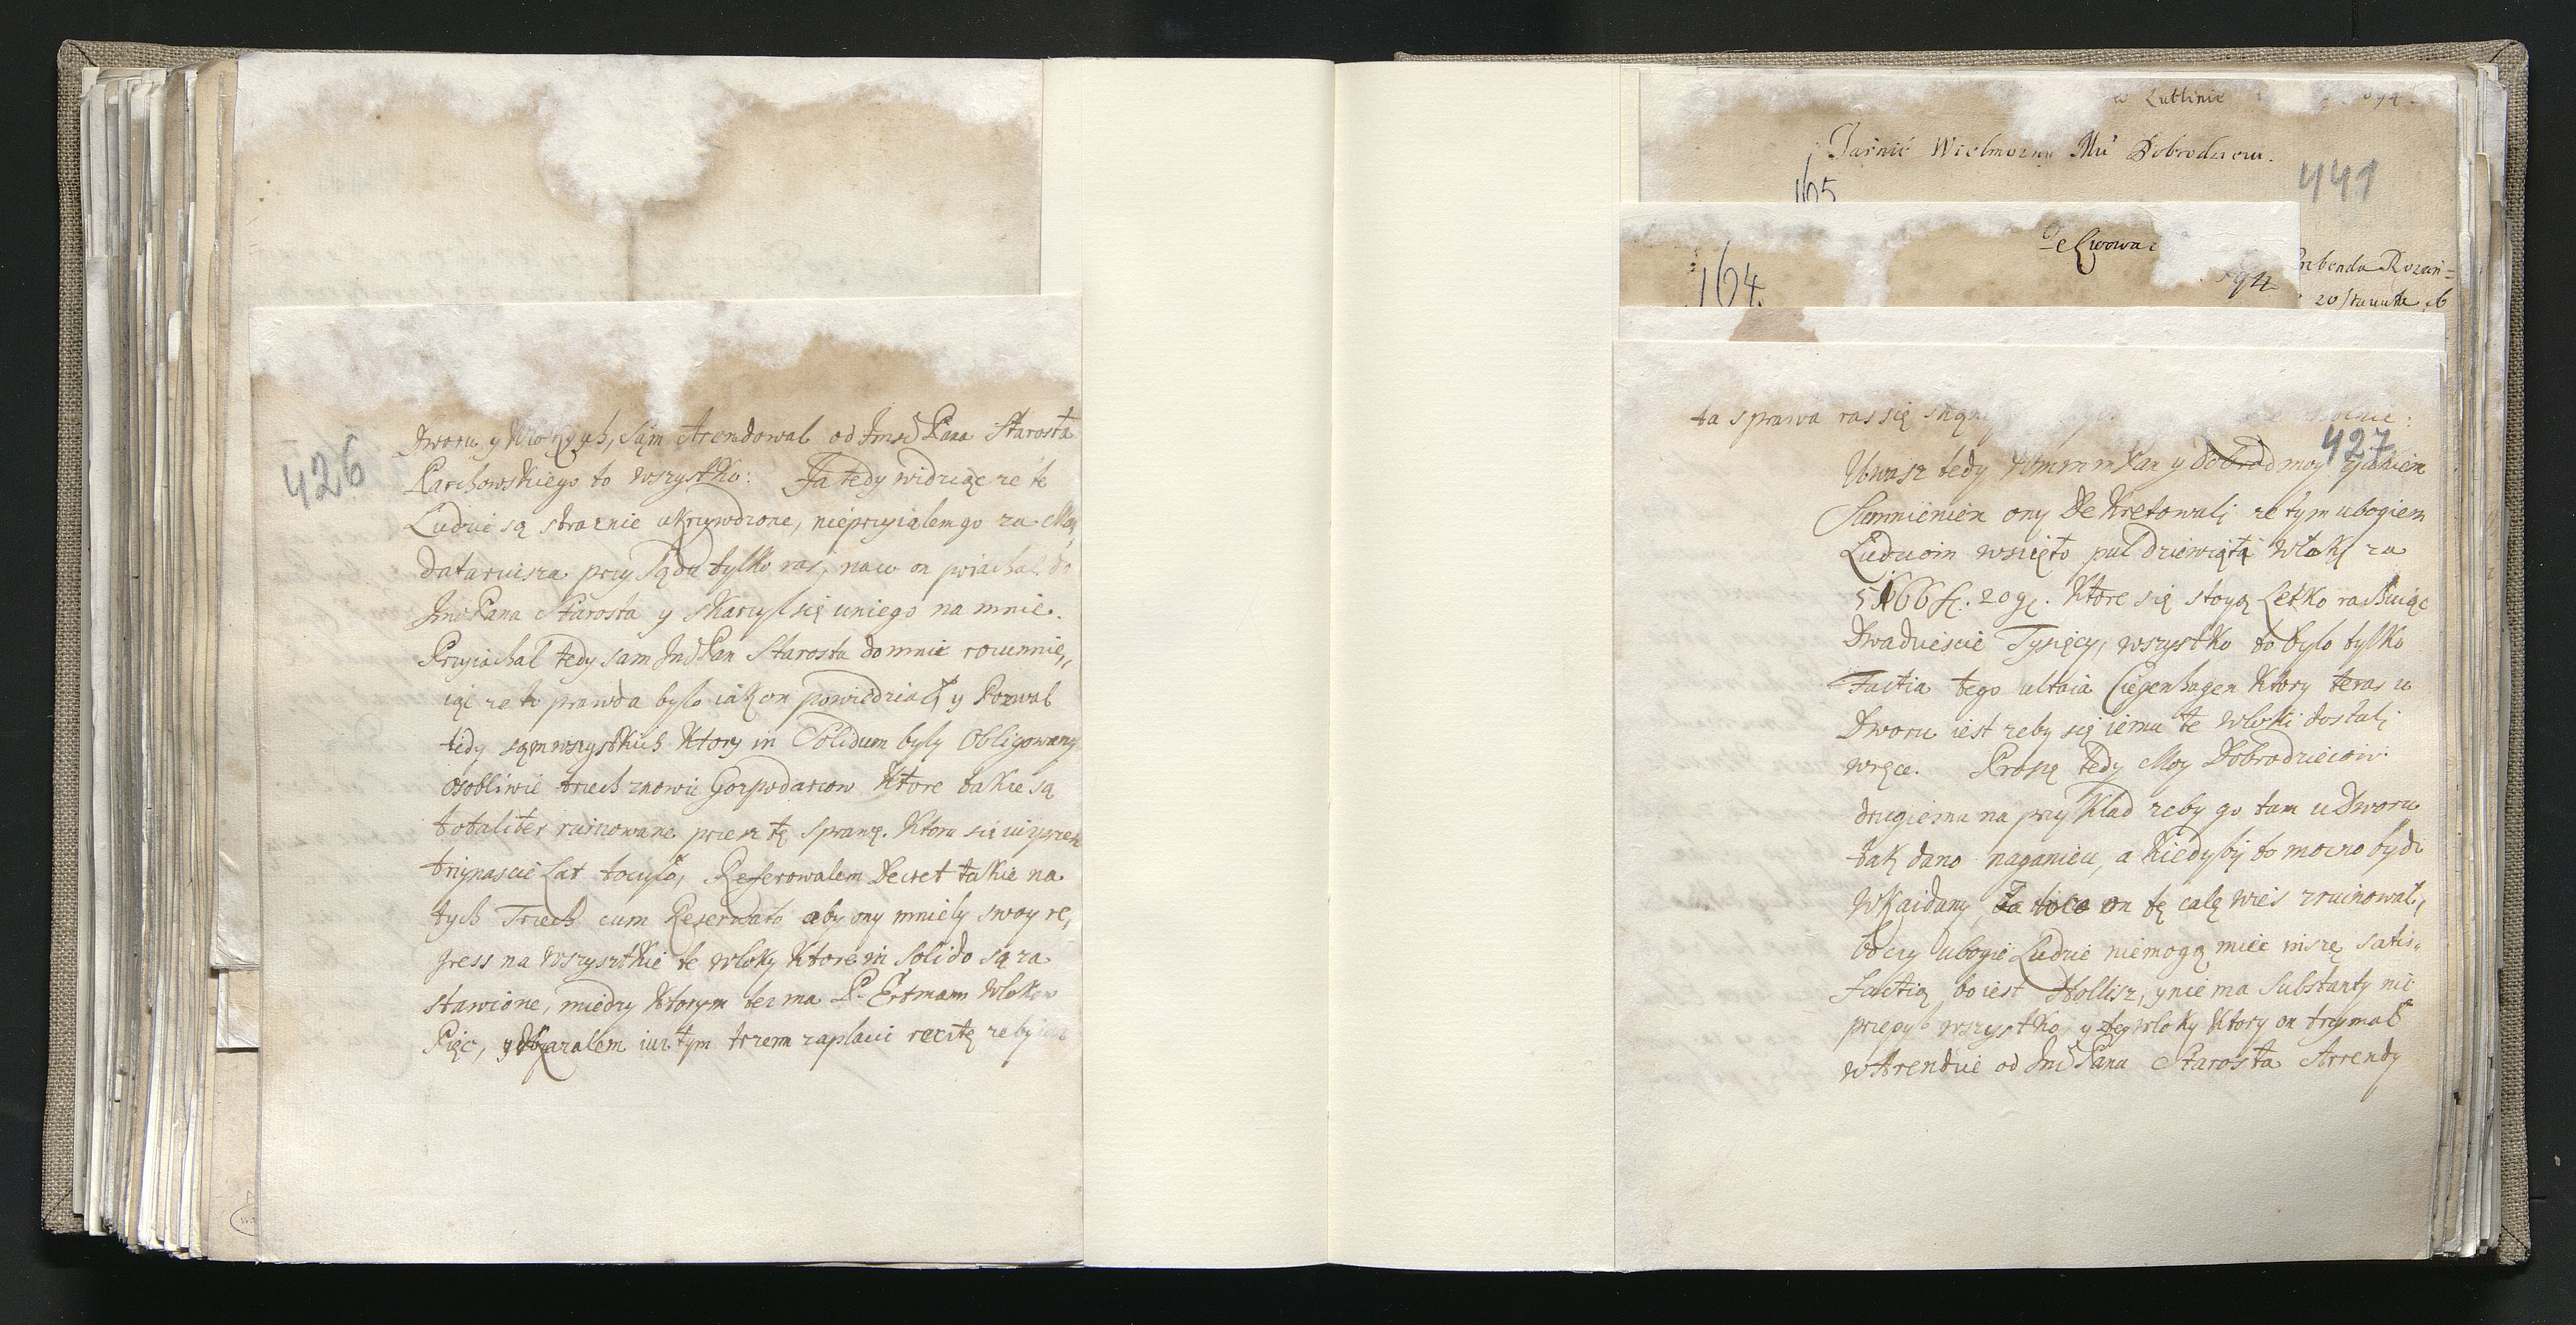 426
Dworu y Włokach, sąm Arendowal od Jmsc Pana Starosta
Parchowskiego to wszystko: Ja tedy widzięc ze te
Ludzie są straznie ukrzywdzone, nieprzyialem go za Man
datariusza przy Sądu tylko ras, na co on poiachal do
Jmc Pana Starosta y skarzyl się uniego na mnie.
Przyiachal tedy sam Jmc Pan Starosta do mnie rozumnie,,
iąc ze to prawda bylo iak on powiedzial, y Pozwal
tedy sąm wszystkich Ktory in Solidum byly Obligowany
osobliwie trzech znowu Gospodarzow Ktore takie są
totaliter ruinowane przez tę sprawę. Ktora się iuz przez
trzynascie Lat toczyla, Referowalem Decret takie na
tych Trzech cum Reservato aby ony mniely swoy re,
gress na wszystkie te wloky Ktore in Solido są za
stawione, miedzy Ktorym tez ma P. Ertmann Wlokow
Pięc, y Kazalem iuz tym trzem zaplaci resztę zeby
w Lublinie 94
Jasnie Wielmozny Mci Dobrodzieiu.
165
441
Ze Lwowa
164.
94
20
ta sprawa ras się
427
Uwasz tedy Wmmm Pan y Dobrod moy zjakiem
Sumnieniem ony Dekretowali ze tym ubogiem
Ludzioim wzięto pul dziewiąta Wloki za
5166 fl. 20 g. Ktore się stoyą Letko rachuiąc
Dwadziescie Tysięcy, wszystko to bylo tylko
Factia tego ultaia Ciegenhagen Ktory teras u
Dworu iest zeby się iemu te Wloki dostali
wręce. Proszę tedy Moy Dobrodzieiow
drugiemu na przyklad zeby go tam u Dworu
tak dano naganieu, a Kiedy by to mozno bydz
W Kaidany, on tę calę wies zruinowal,
boczy ubogie Ludzie niemogą miec inszę satis,,
factią, bo iest Hollisz, y nie ma Substanty nic
przepyl wszystko, y ztey wloky Ktory on trzymal
w Arendzie od Jmc Pana Starosta Arrendy